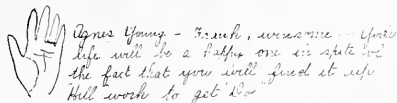 Agnes Young - Frank, winsome - Your
life will be a happy one in spite of
the fact that you will find it up
Hill work to get "Do